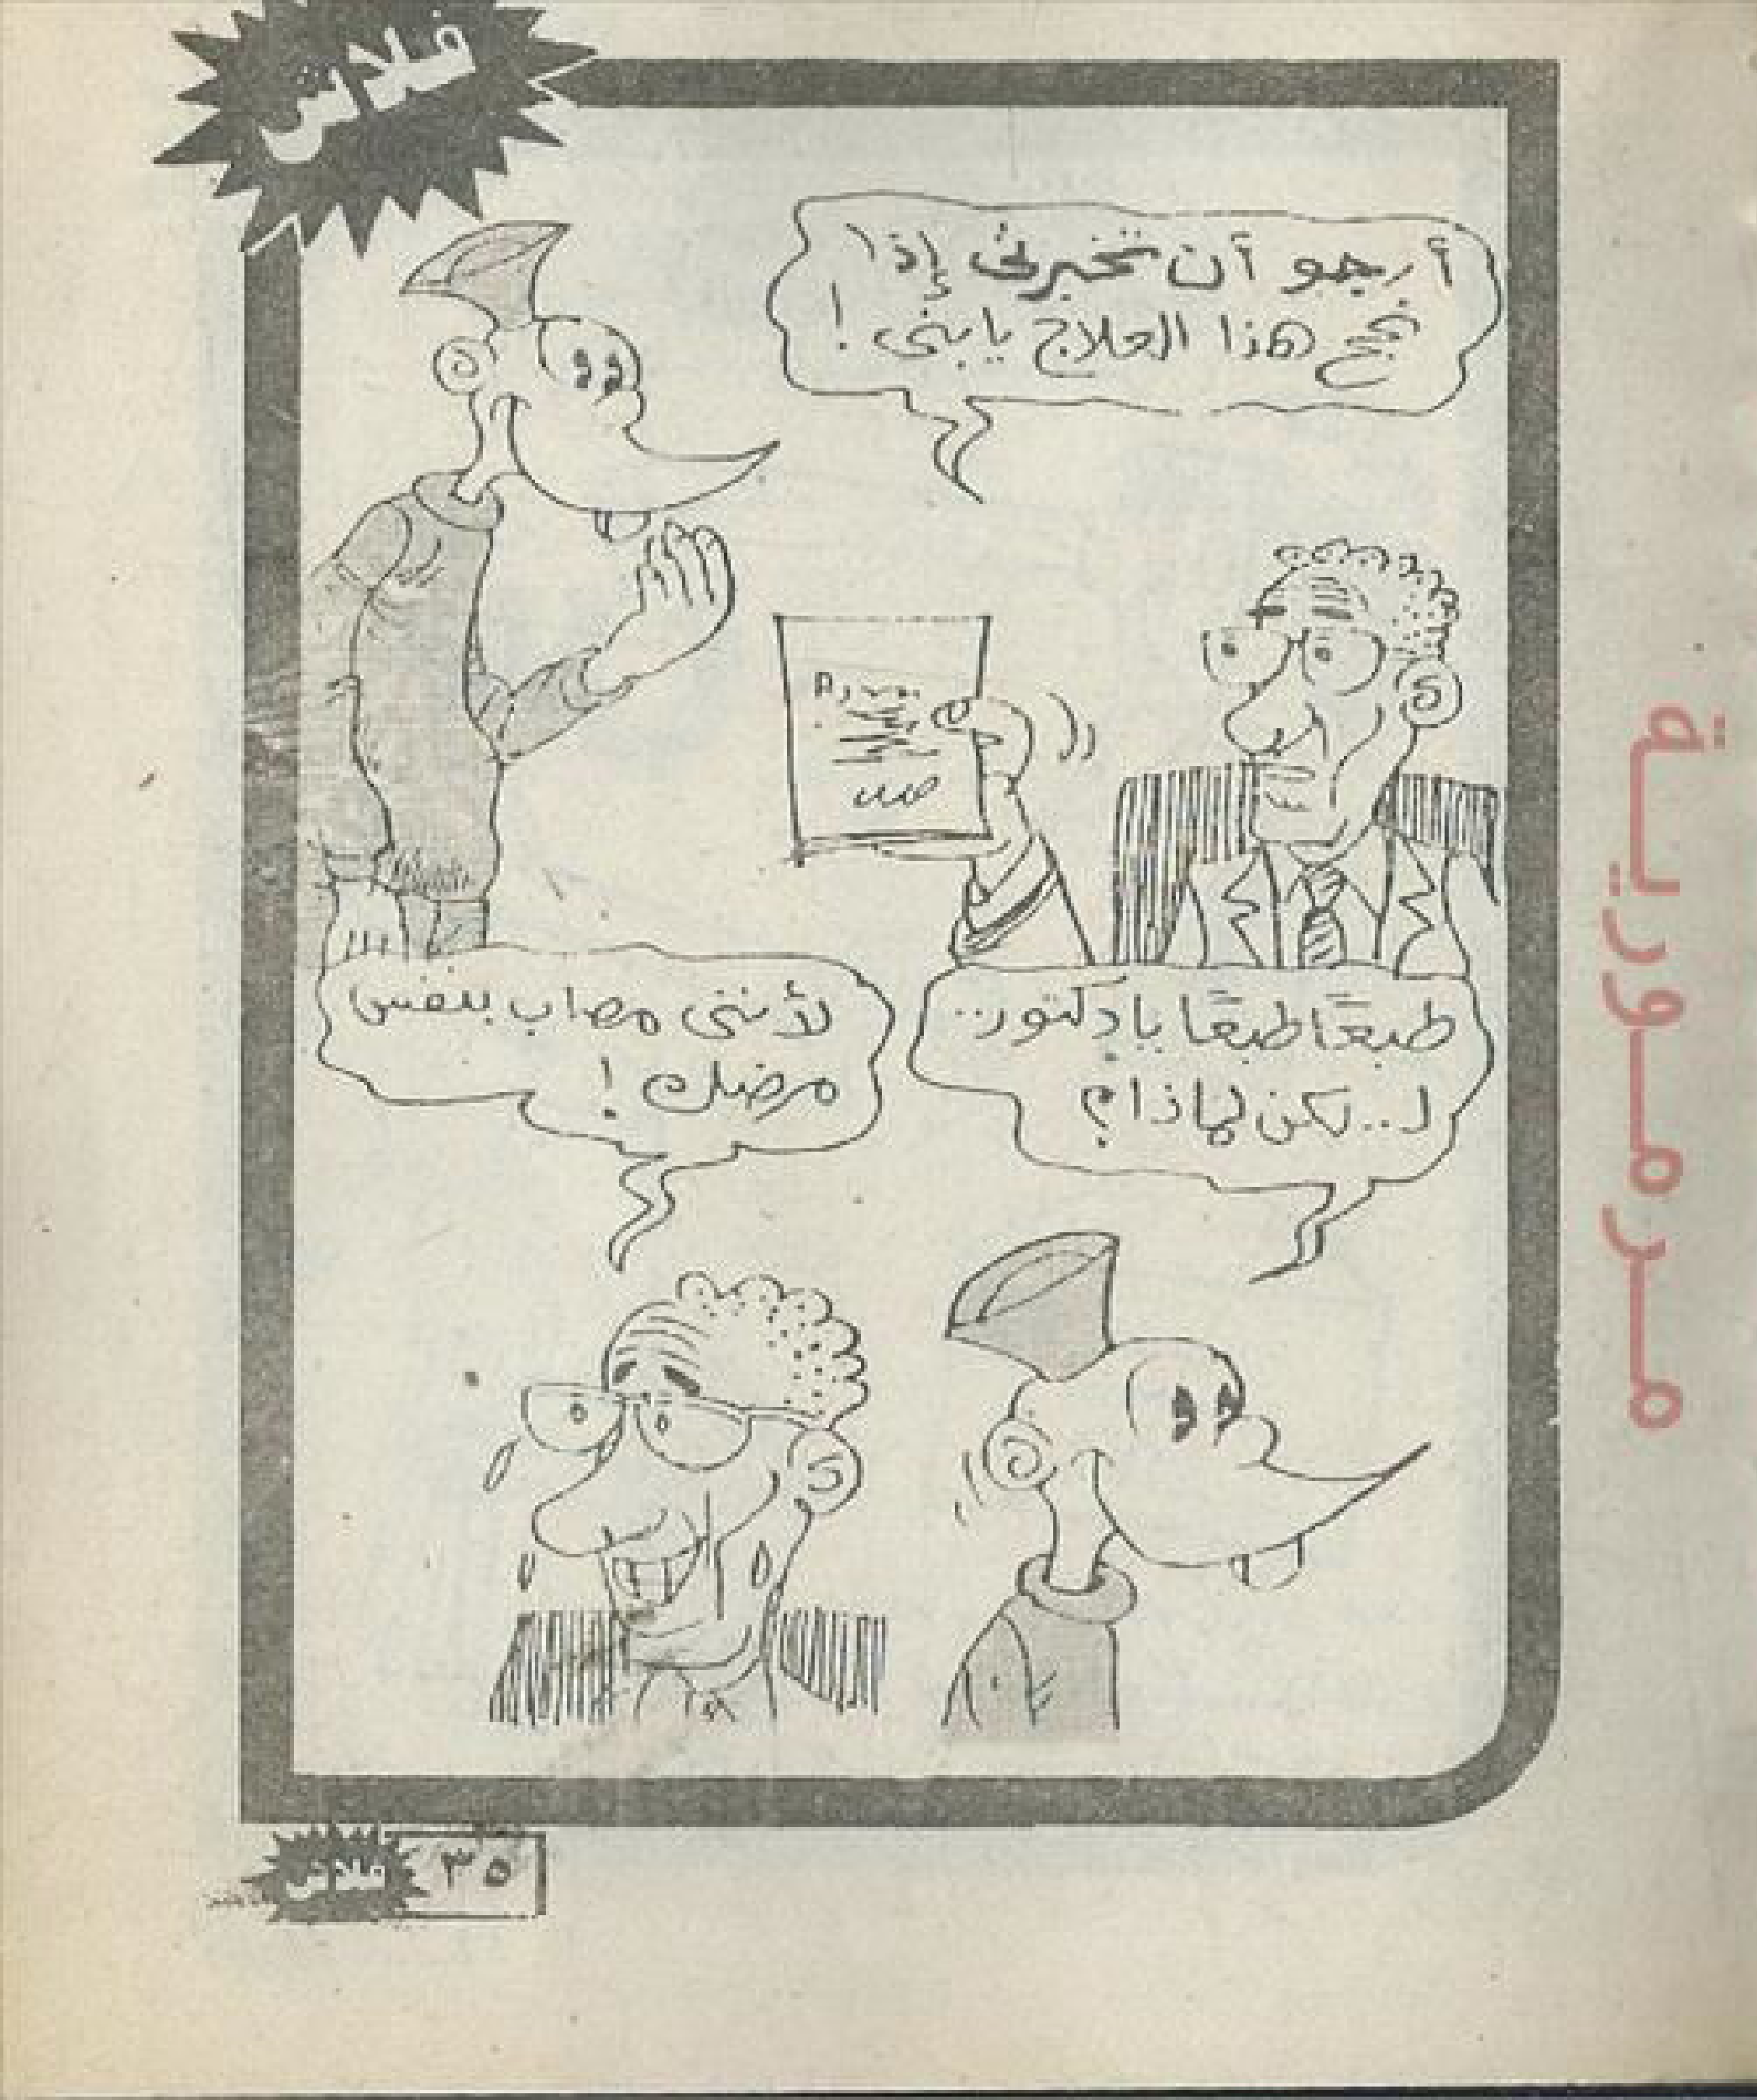 فلاش
أرجو أن تخبرني إذا
نجح هذا العلاج يا بنى !
طبعًا طبعًا يا دكتور..
لـ..لكن لماذا ؟
لأننى مصاب بنفس
مرضك !
٣٥
فلاش
مرمورية